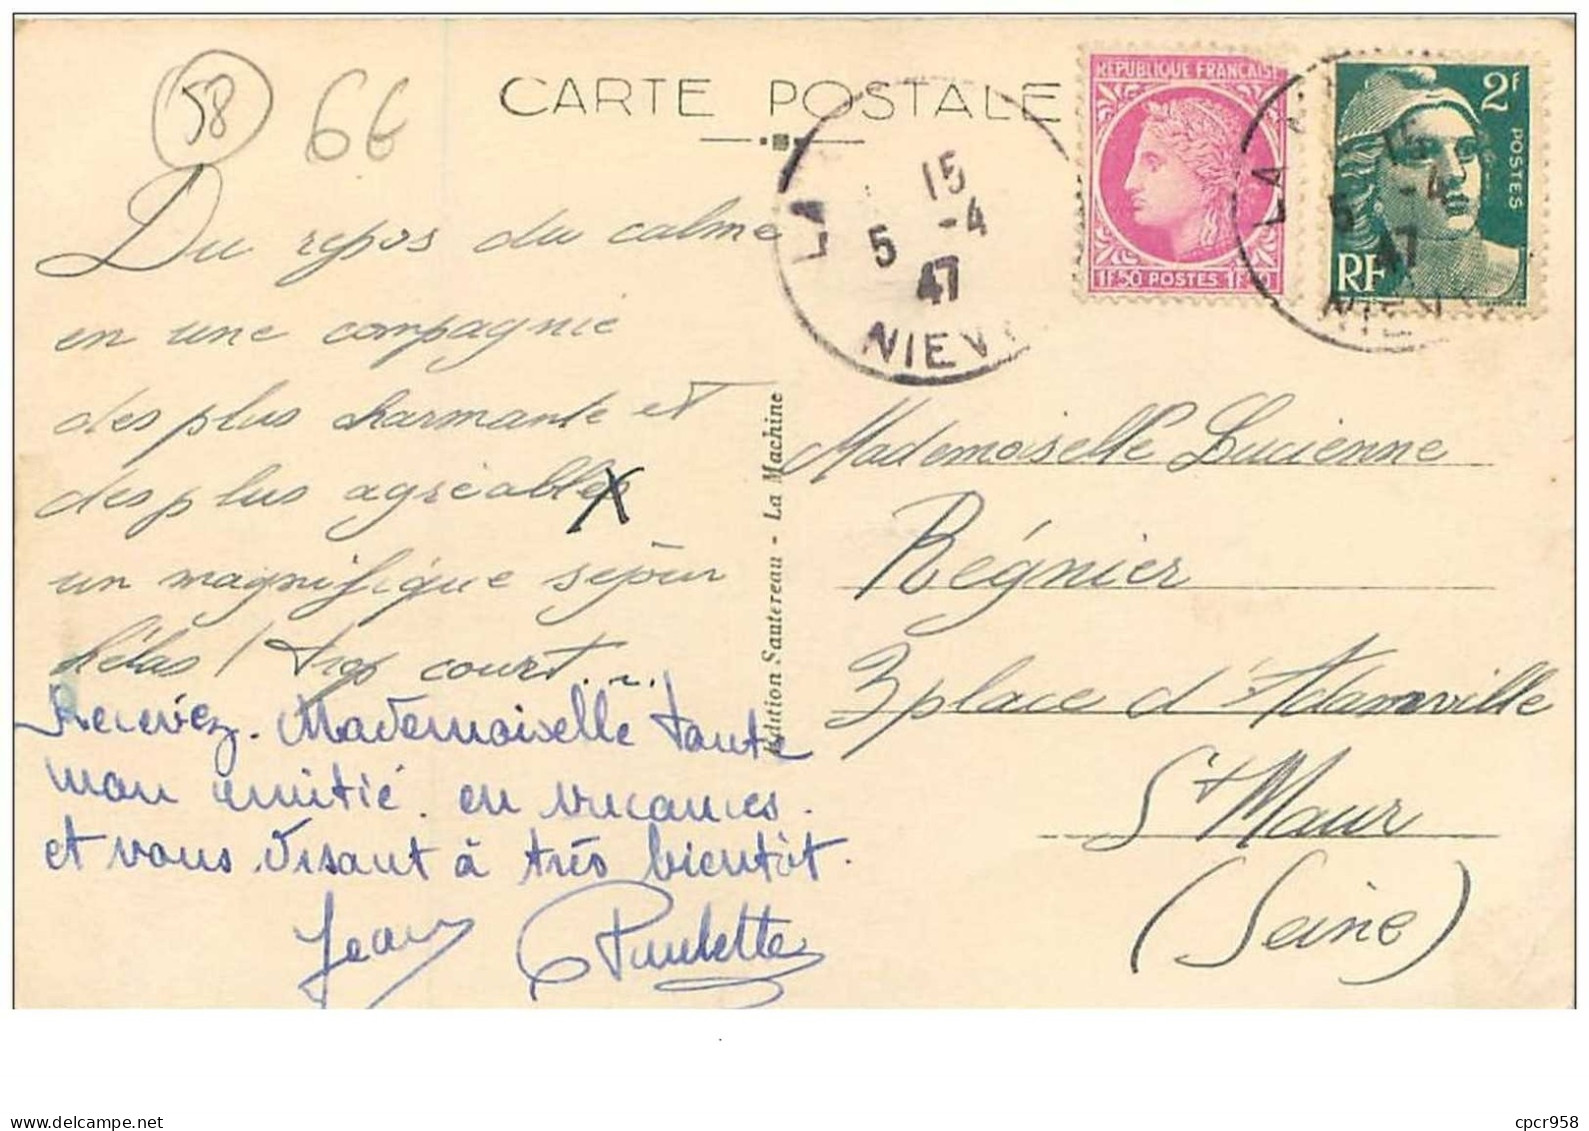 58
6€
CARTE POSTALE
RÉPUBLIQUE FRANÇAISE
1F50 POSTES 1F50
2F
POSTES
RF
LA
15
5 -4
47
NIEV
LA
15
5 -4
47
NIEV
Du repos du calme
en une compagnie
des plus charmante et
des plus agréables
un magnifique séjour
hélas ! trop court...
Recevez. Mademoiselle toute
mon amitié. en vacances.
et vous disant à très bientôt.
Jean Paulette
Edition Sautereau - La Machine
Mademoiselle Lucienne
Régnier
3 place d'Adamville
St Maur
(Seine)
www.delcampe.net
cpcr958